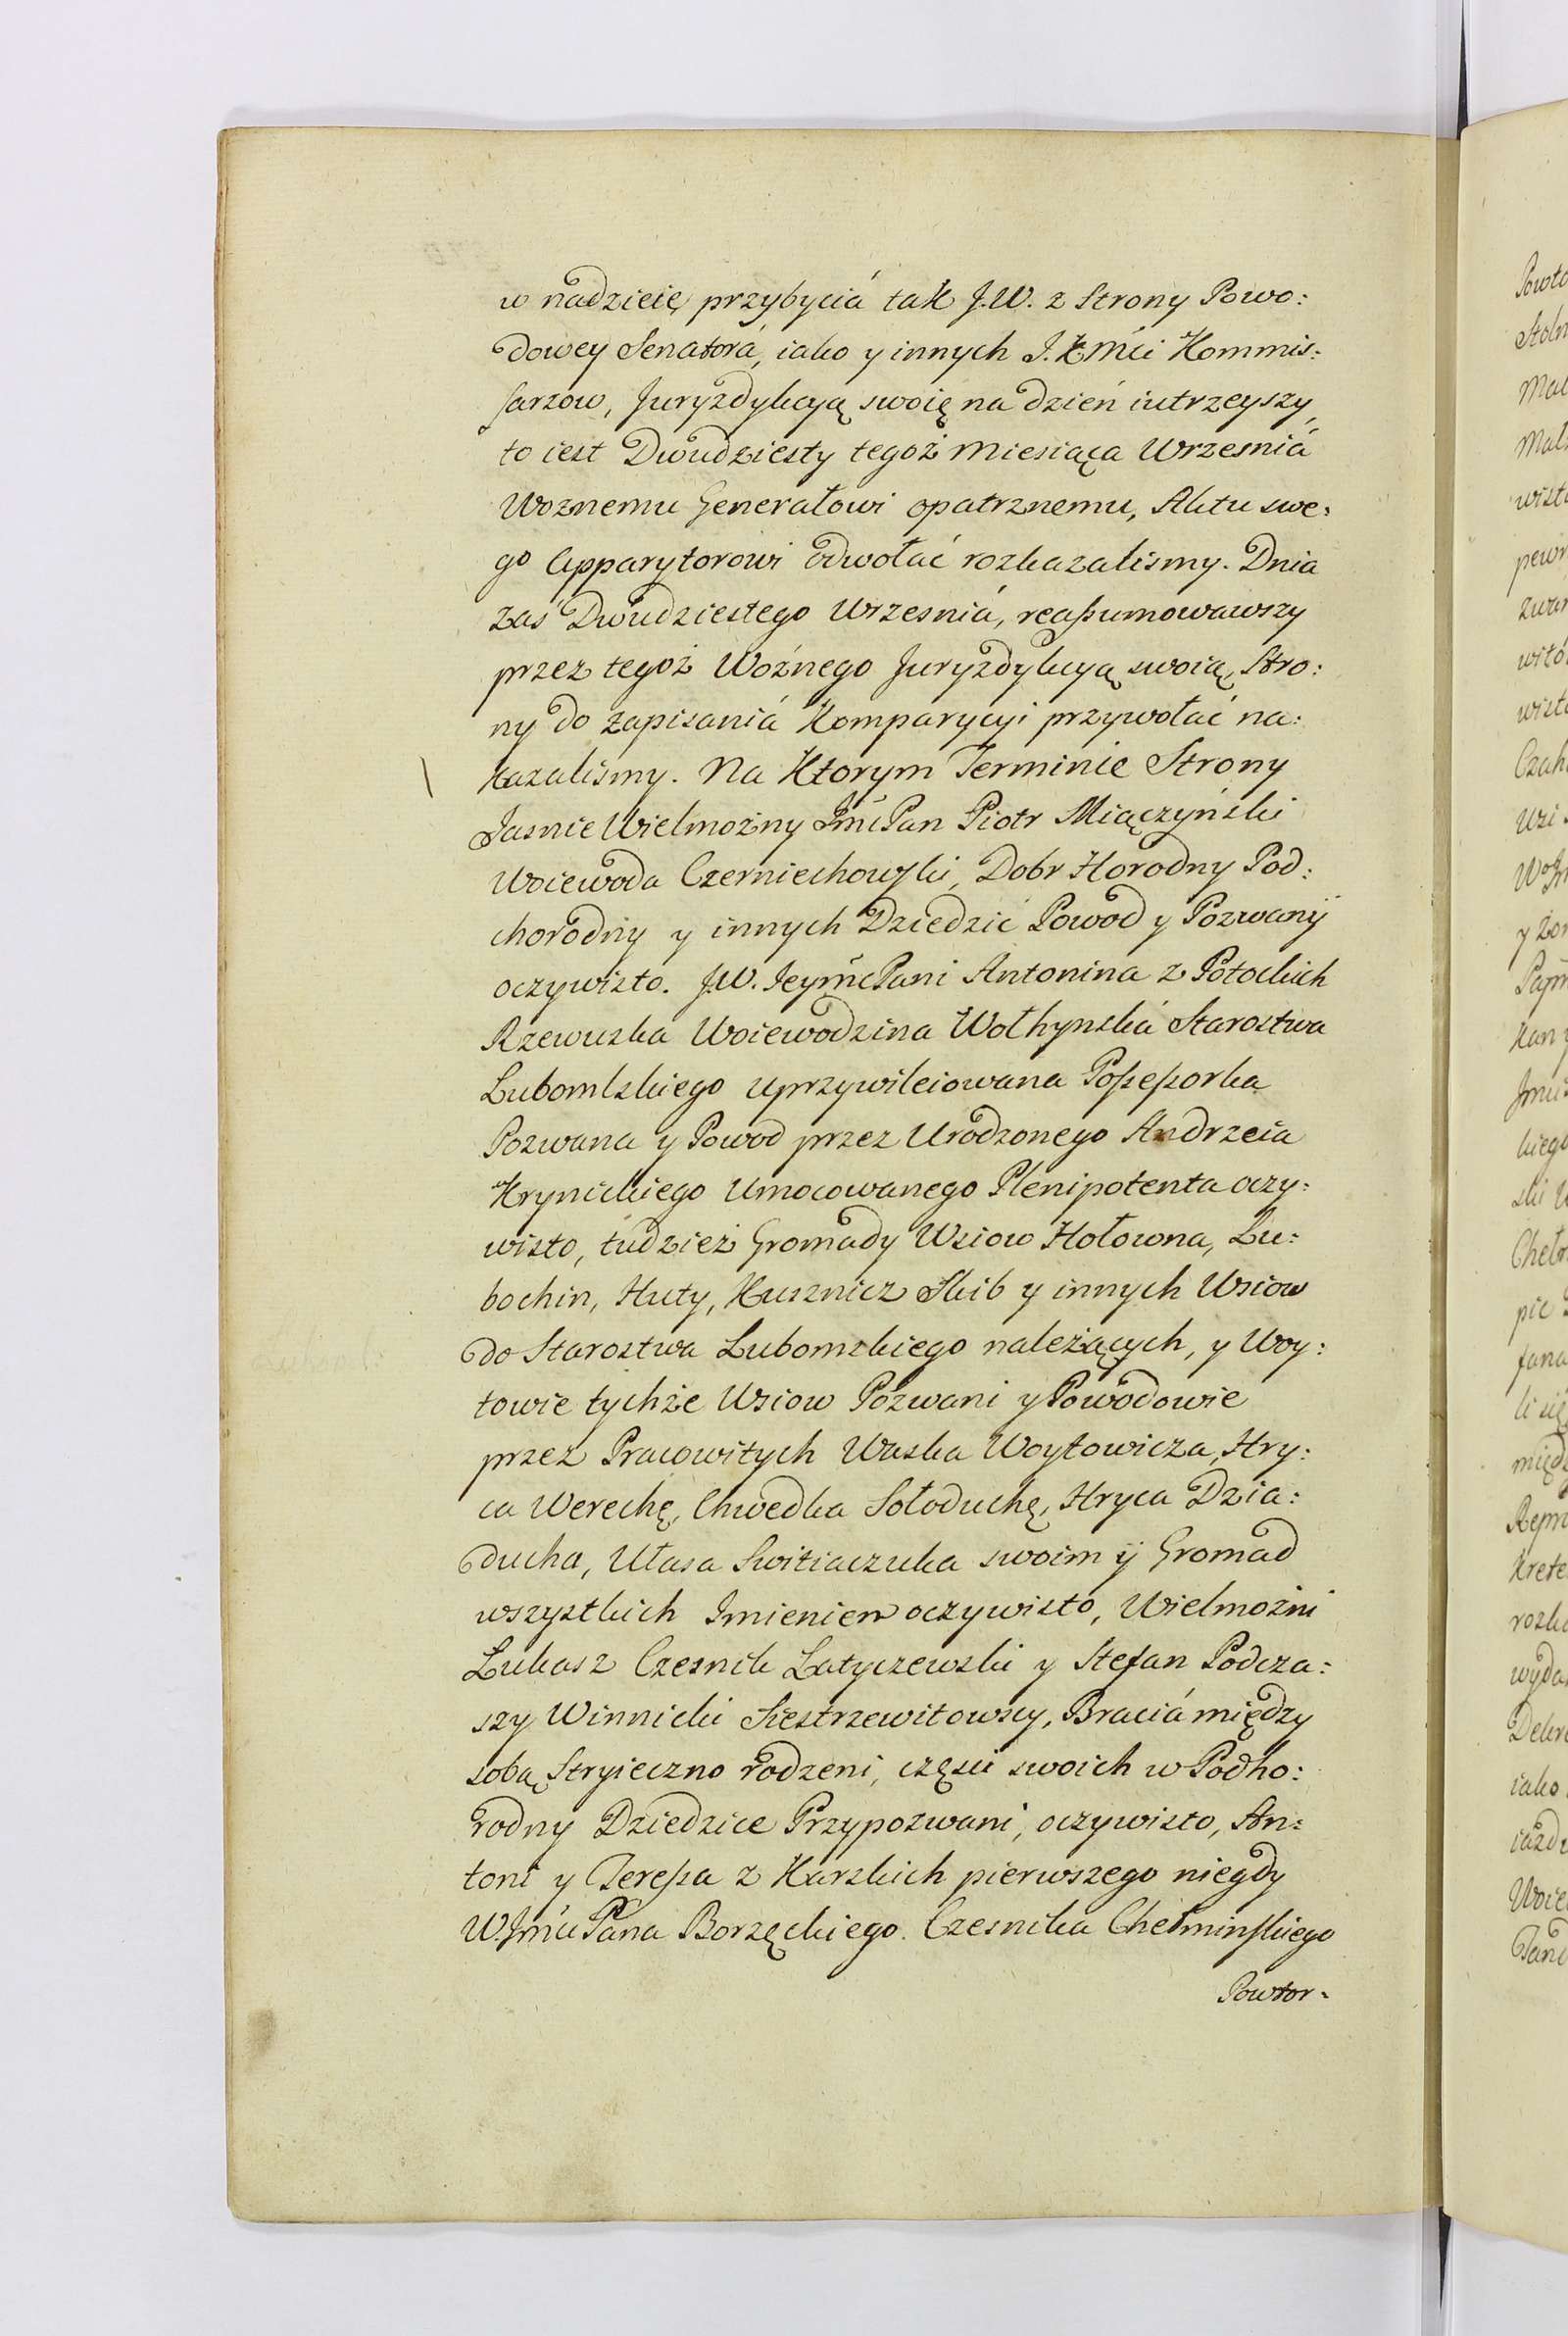 w nadzieię przybyciá tak J.W. z Strony Powo:
dowey Senatorá, iako y innych I. Kmći Kommis:
sarzow, Juryzdykcyą swoię na dzień iutrzeyszy,
to iest Dwudziesty tegoż Miesiąca Wrzesniá
Woznemu Generałowi opatrznemu, Aktu swe:
go Apparytorowi odwołać rozkazalismy. Dnia
zaś Dwudziestego Wrzesniá, reaßumowawszy
przez tegoż Woźnego Juryzdykcyą swoią, Stro:
ny do zapisaniá Komparycyi przywołać na:
kazalismy. Na Ktorym Terminie Strony
Jasnie Wielmożny Jmć Pan Piotr Miączyński
Woiewoda Czerniechowski, Dobr Horodny Pod:
chorodny y innych Dziedzic Powod y Pozwany
oczywisto. J.W. Ieymć Pani Antonina z Potockich
Rzewuska Woiewodzina Wołhynská Starostwa
Lubomlskiego uprzywileiowana Poßeßorka
Pozwana y Powod przez Urodzonego Andrzeia
Krynickiego Umocowanego Plenipotenta oczy:
wisto, tudzież Gromady Wsiow Hołowna, Lu:
bochin, Huty, Kusznicz Skib y innych Wsiow
do Starostwa Lubomskiego należących, y Woy:
towie tychże Wsiow Pozwani y Powodowie
przez Pracowitych Waska Woytowicza, Hry:
ca Werechę, Chwedka Sołoduchę, Hryca Dzia:
ducha, Ułasa Switiaczuka swoim ÿ Gromad
wszystkich Imieniem oczywisto, Wielmożni
Lukasz Czesnik Latyczewski y Stefan Podcza:
szy Winnicki Siestrzewitowscy, Braciá między
sobą Stryieczno rodzeni, części swoich w Podho:
rodny Dziedzice Przypozwani, oczywisto, An:
toni y Tereßa z Karskich pierwszego niegdy
W. Jmći Pana Borzęckiego. Czesnika Chełminskiego
Powtor:
Powto